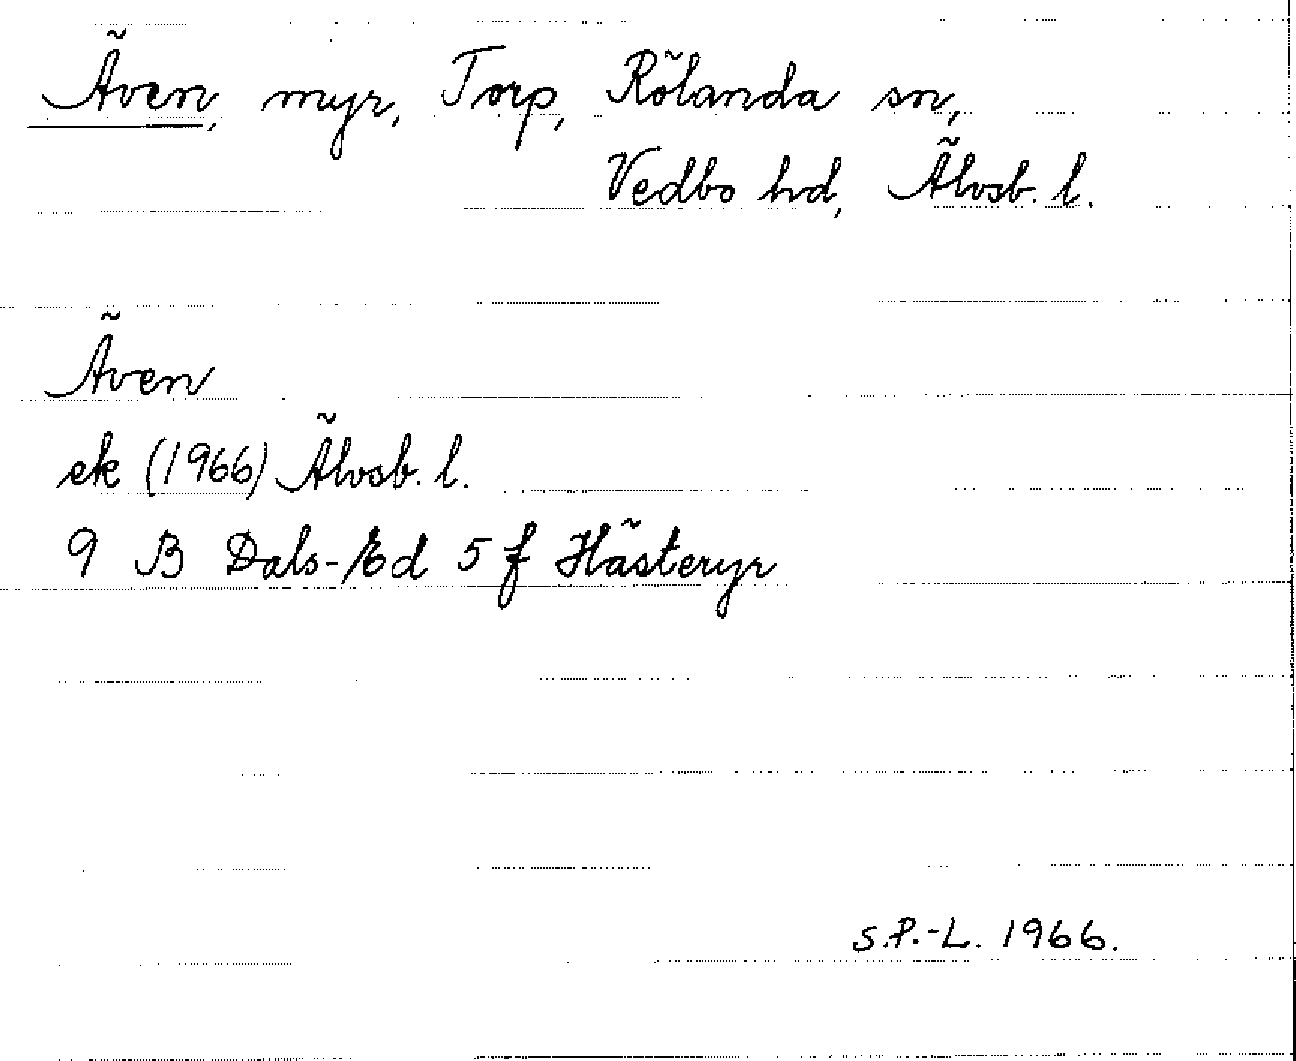 Även, myr, Torp, Rölanda sn,
Vedbo hd, Älvsb. l.
Även
ek (1966) Älvsb. l.
9 B Dals-Ed 5 f Hästeryr
S.P.-L. 1966.